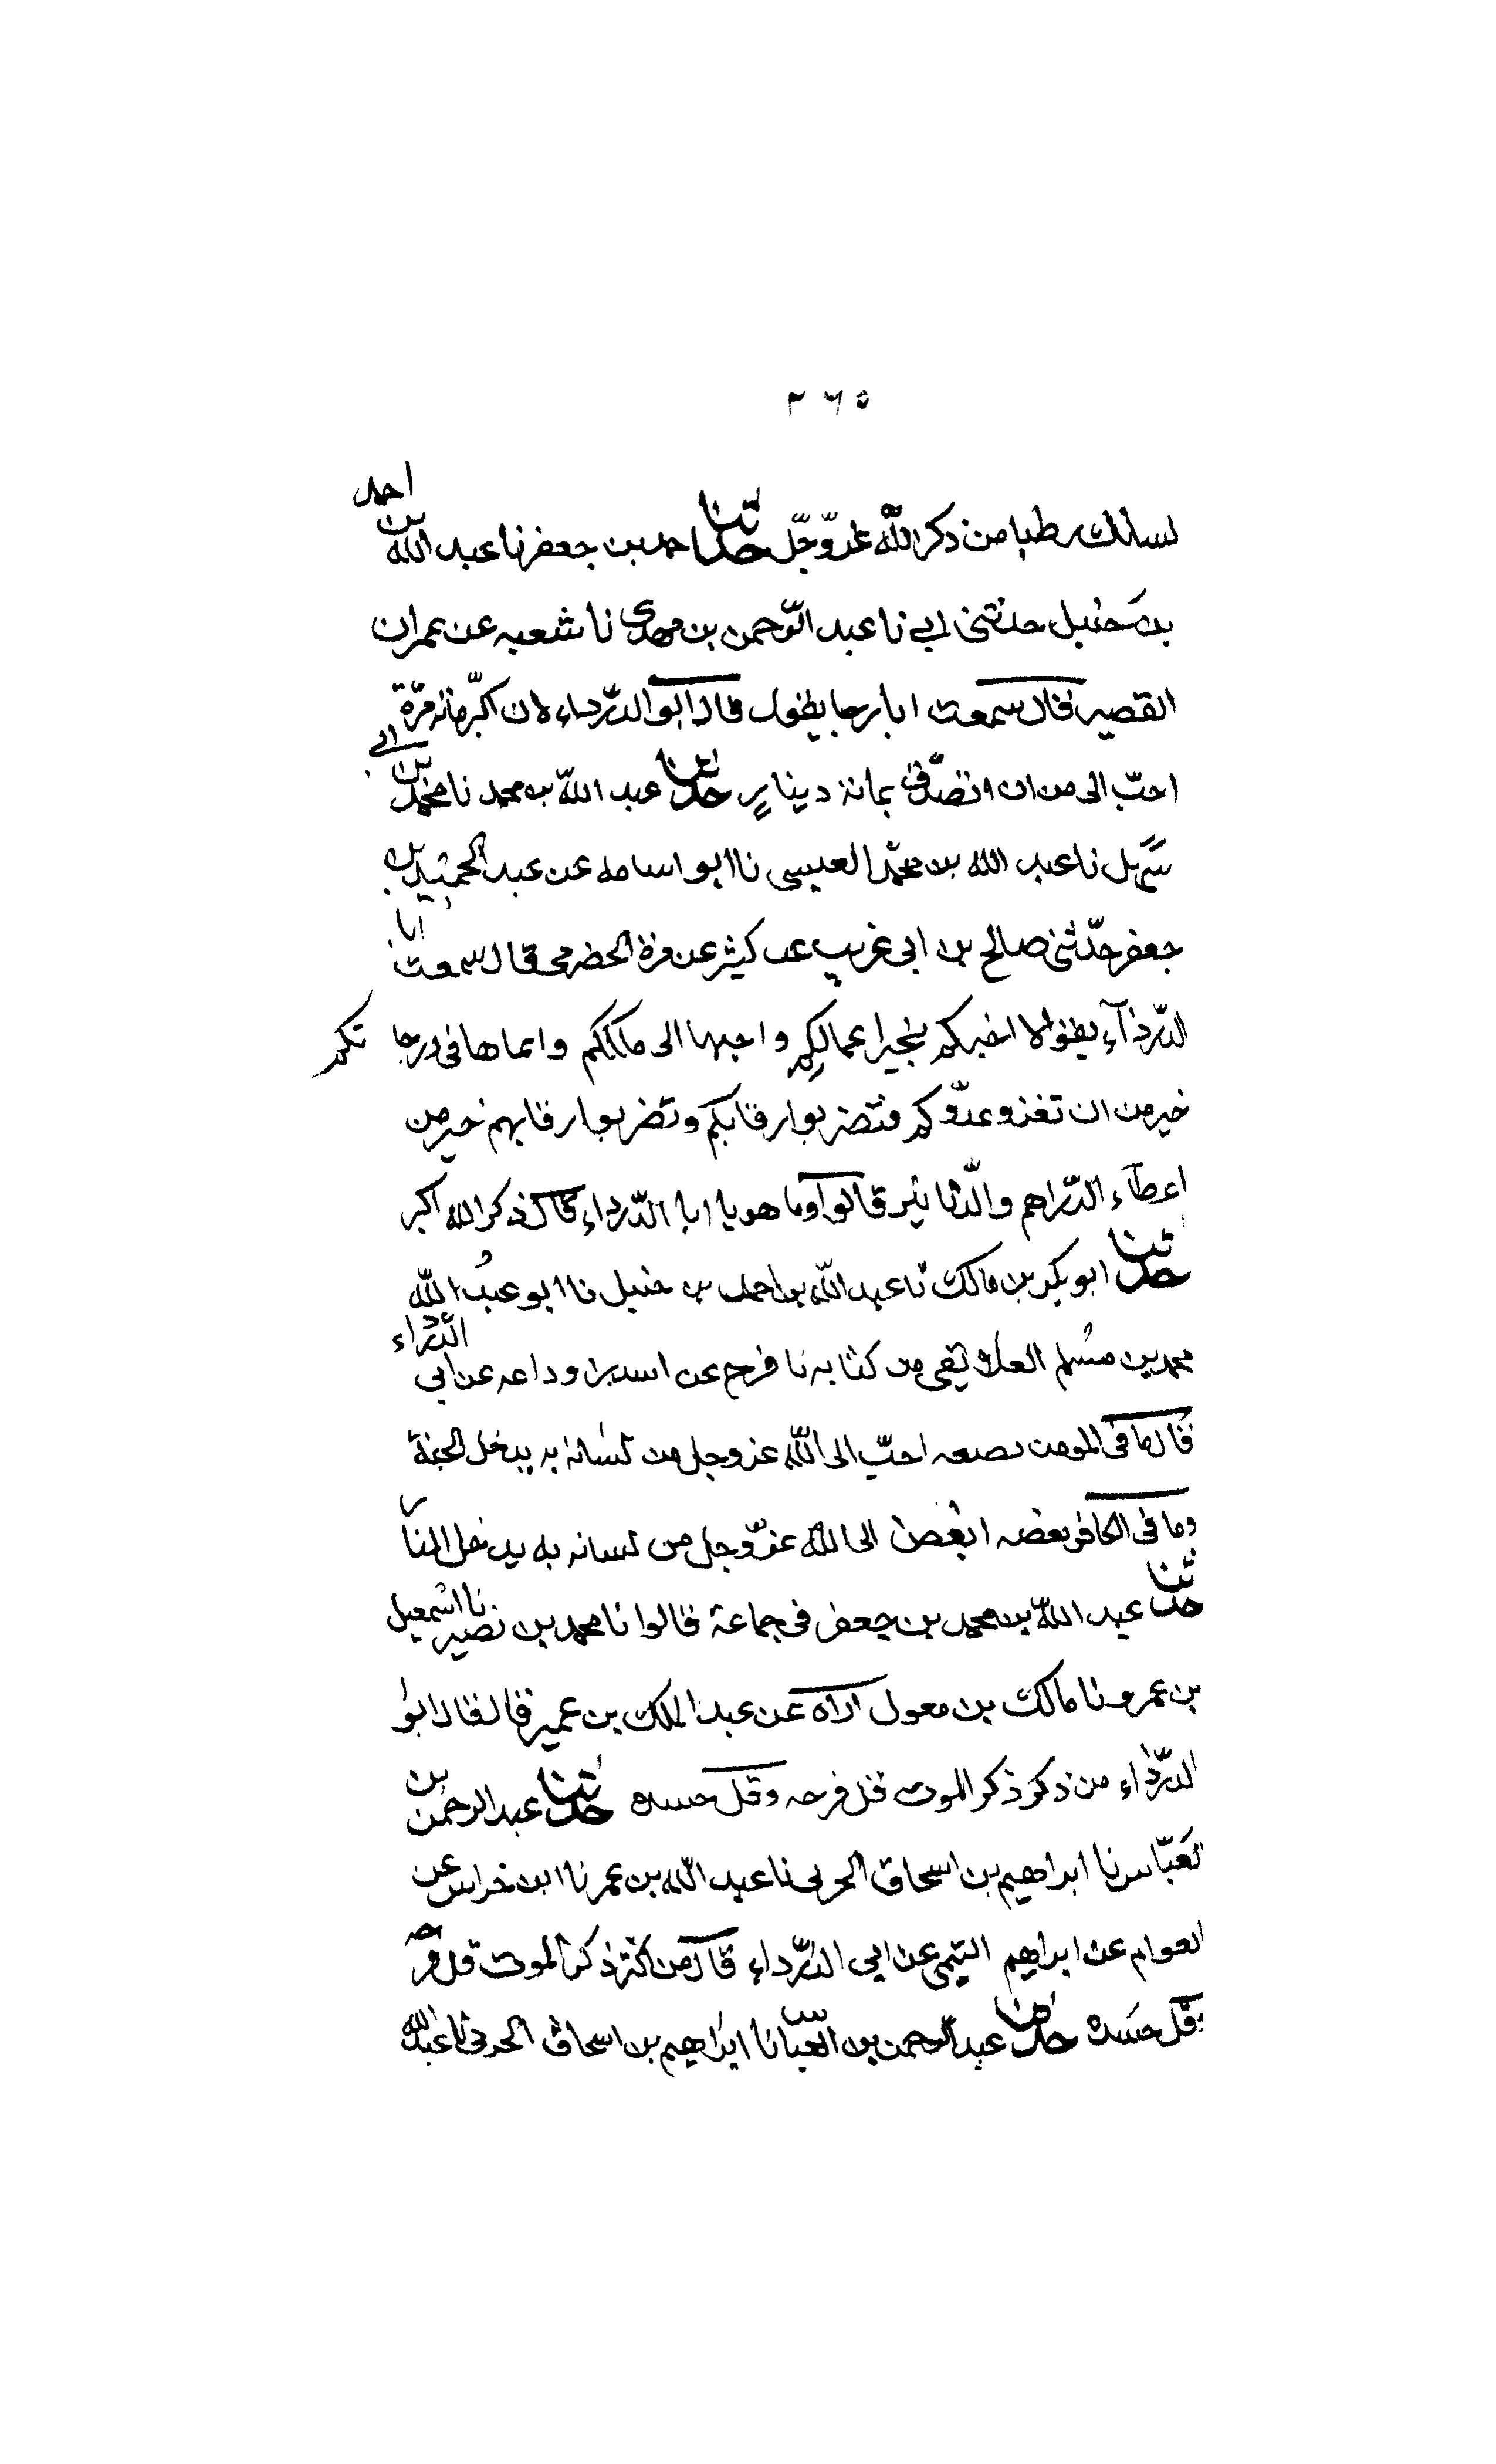 ٢٦٥
لسانك رطبا من ذكر الله عز وجل حدثنا احمد بن جعفر نا عبد الله بن احمد
بن حنبل حدثني ابي نا عبد الرحمن بن مهدي نا شعبه عن عمران
القصير قال سمعت ابا رجا يقول قال ابو الدرداء لان اكبر مائة مرة
احب الى من ان اتصدق بمائة دينار حدثنا عبد الله بن محمد نا محمد بن ابي
سهل نا عبد الله بن محمد العبسي نا ابو اسامه عن عبد الحميد بن
جعفر حدثني صالح بن ابي غريب عن كثير عن مرة الحضرمي قال سمعت ابا
الدرداء يقول الا اخبركم بخير اعمالكم واحبها الى مليككم وانماها في درجاتكم
خير من ان تغزو عدوكم فتضربوا رقابكم وتضربوا رقابهم خير من
اعطاء الدراهم والدنانير قالوا وما هو يا ابا الدرداء قال ذكر الله اكبر
حدثنا ابو بكر بن مالك نا عبد الله بن احمد بن حنبل نا ابو عبد الله
محمد بن مسلم من كتابه نا فرج عن اسد بن وداعه عن ابي الدرداء
قال ما في المومن بضعه احب الى الله عز وجل من لسانه به يدخل الجنة
وما في الكافر بعضه ابغض الى الله عز وجل من لسانه به يدخل النار
حدثنا عبد الله بن محمد بن جعفر في جماعة قالوا نا محمد بن نصير نا اسمعيل
بن عمرو نا مالك بن معول اراه عن عبد الملك بن عمير قال قال ابو
الدرداء من ذكر ذكر الموت قل فرحه وقل حسده حدثنا عبد الرحمن بن
العباس نا ابراهيم بن اسحاق الحربي نا عبد الله بن عمر نا ابن خراس عن
العوام عن ابراهيم التيمي عن ابي الدرداء قال من اكثر ذكر الموت قل فرحه
وقل حسده حدثنا عبد الرحمن بن العباس نا ابراهيم بن اسحاق الحربي نا عبد الله